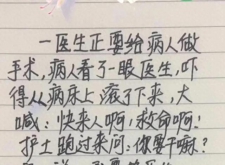 一医生正要给病人做
手术,病人看了一眼医生,吓
得从病床上滚了下来,大
喊:快来人啊,救命啊!
护士跑过来问:你要干嘛?